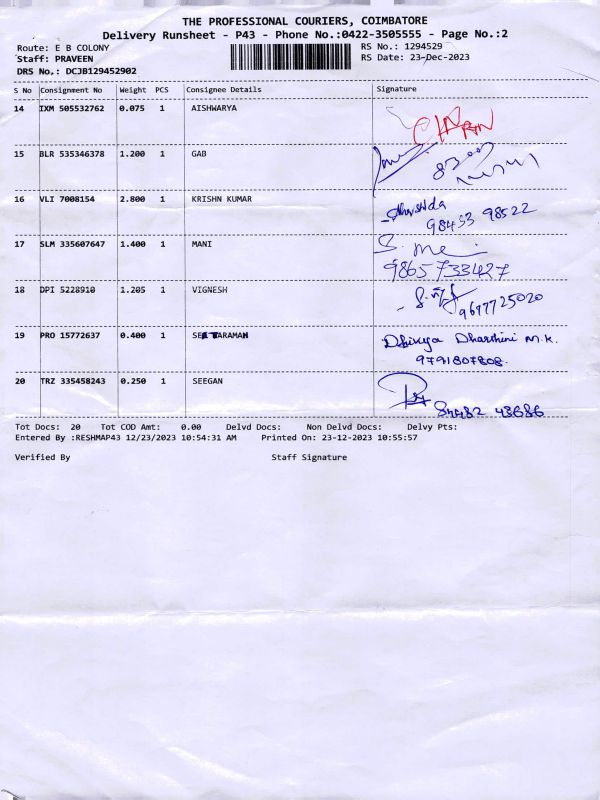 THE PROFESSIONAL COURIERS, COIMBATORE
Delivery Runsheet - P43 - Phone No.:0422-3505555 - Page No.:2
Route: E B COLONY RS No.: 1294529
Staff: PRAVEEN RS Date: 23-Dec-2023
DRS No.: DCJB129452902
S No Consignment No Weight PCS Consignee Details Signature
14 IXM 505532762 0.075 1 AISHWARYA
15 BLR 535346378 1.200 1 GAB
16 VLI 7008154 2.800 1 KRISHN KUMAR
98433 98522
17 SLM 335607647 1.400 1 MANI
9865733427
18 DPI 5228910 1.205 1 VIGNESH
9697725020
19 PRO 15772637 0.400 1 SEETARAMAN Dhivya Dharshini M.K.
9791807808.
20 TRZ 335458243 0.250 1 SEEGAN
84482 48686
Tot Docs: 20 Tot COD Amt: 0.00 Delvd Docs: Non Delvd Docs: Delvy Pts:
Entered By :RESHMAP43 12/23/2023 10:54:31 AM Printed On: 23-12-2023 10:55:57
Verified By Staff Signature